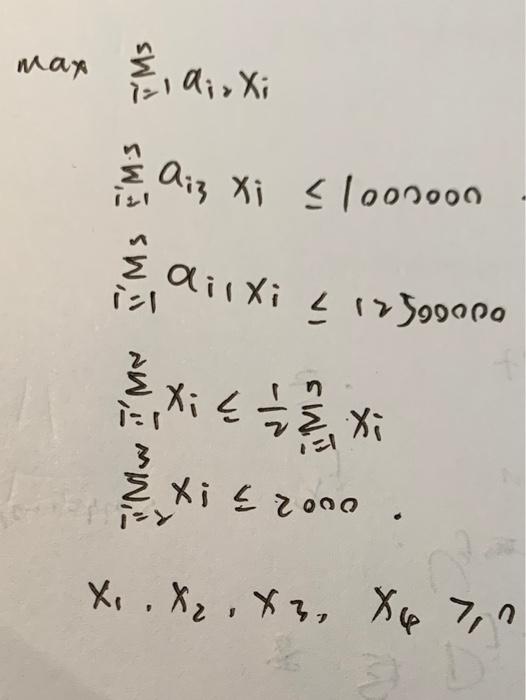 max ∑_{i=1}^{n} a_{i2} x_i
∑_{i=1}^{n} a_{i3} x_i ≤ 1000000
∑_{i=1}^{n} a_{i1} x_i ≤ 12500000
∑_{i=1}^{2} x_i ≤ 1/2 ∑_{i=1}^{n} x_i
∑_{i=2}^{3} x_i ≤ 2000 .
x_1 , x_2 , x_3 , x_4 ≥ 0